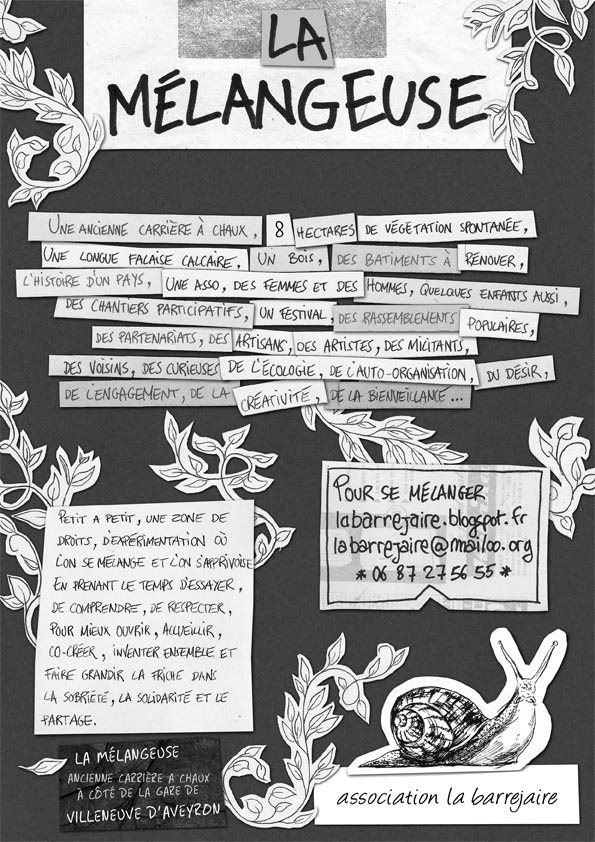 LA
MÉLANGEUSE
UNE ANCIENNE CARRIÈRE À CHAUX, 8 HECTARES DE VÉGETATION SPONTANÉE,
UNE LONGUE FALAISE CALCAIRE, UN BOIS, DES BATIMENTS À RÉNOVER,
L'HISTOIRE D'UN PAYS, UNE ASSO, DES FEMMES ET DES HOMMES, QUELQUES ENFANTS AUSSI,
DES CHANTIERS PARTICIPATIFS, UN FESTIVAL, DES RASSEMBLEMENTS POPULAIRES,
DES PARTENARIATS, DES ARTISANS, DES ARTISTES, DES MILITANTS,
DES VOISINS, DES CURIEUSES DE L'ÉCOLOGIE, DE L'AUTO-ORGANISATION, DU DÉSIR,
DE L'ENGAGEMENT, DE LA CRÉATIVITÉ, DE LA BIENVEILLANCE...
PETIT A PETIT, UNE ZONE DE
DROITS, D'EXPÉRIMENTATION OÙ
L'ON SE MÉLANGE ET L'ON S'APPRIVOISE
EN PRENANT LE TEMPS D'ESSAYER,
DE COMPRENDRE, DE RESPECTER,
POUR MIEUX OUVRIR, ACCUEILLIR,
CO-CRÉER, INVENTER ENSEMBLE ET
FAIRE GRANDIR LA FRICHE DANS
LA SOBRIÉTÉ, LA SOLIDARITÉ ET LE
PARTAGE.
POUR SE MÉLANGER
labarrejaire.blogspot.fr
labarrejaire@mailoo.org
* 06 87 27 56 55 *
LA MÉLANGEUSE
ANCIENNE CARRIÈRE A CHAUX
À CÔTÉ DE LA GARE DE
VILLENEUVE D'AVEYRON
association la barrejaire